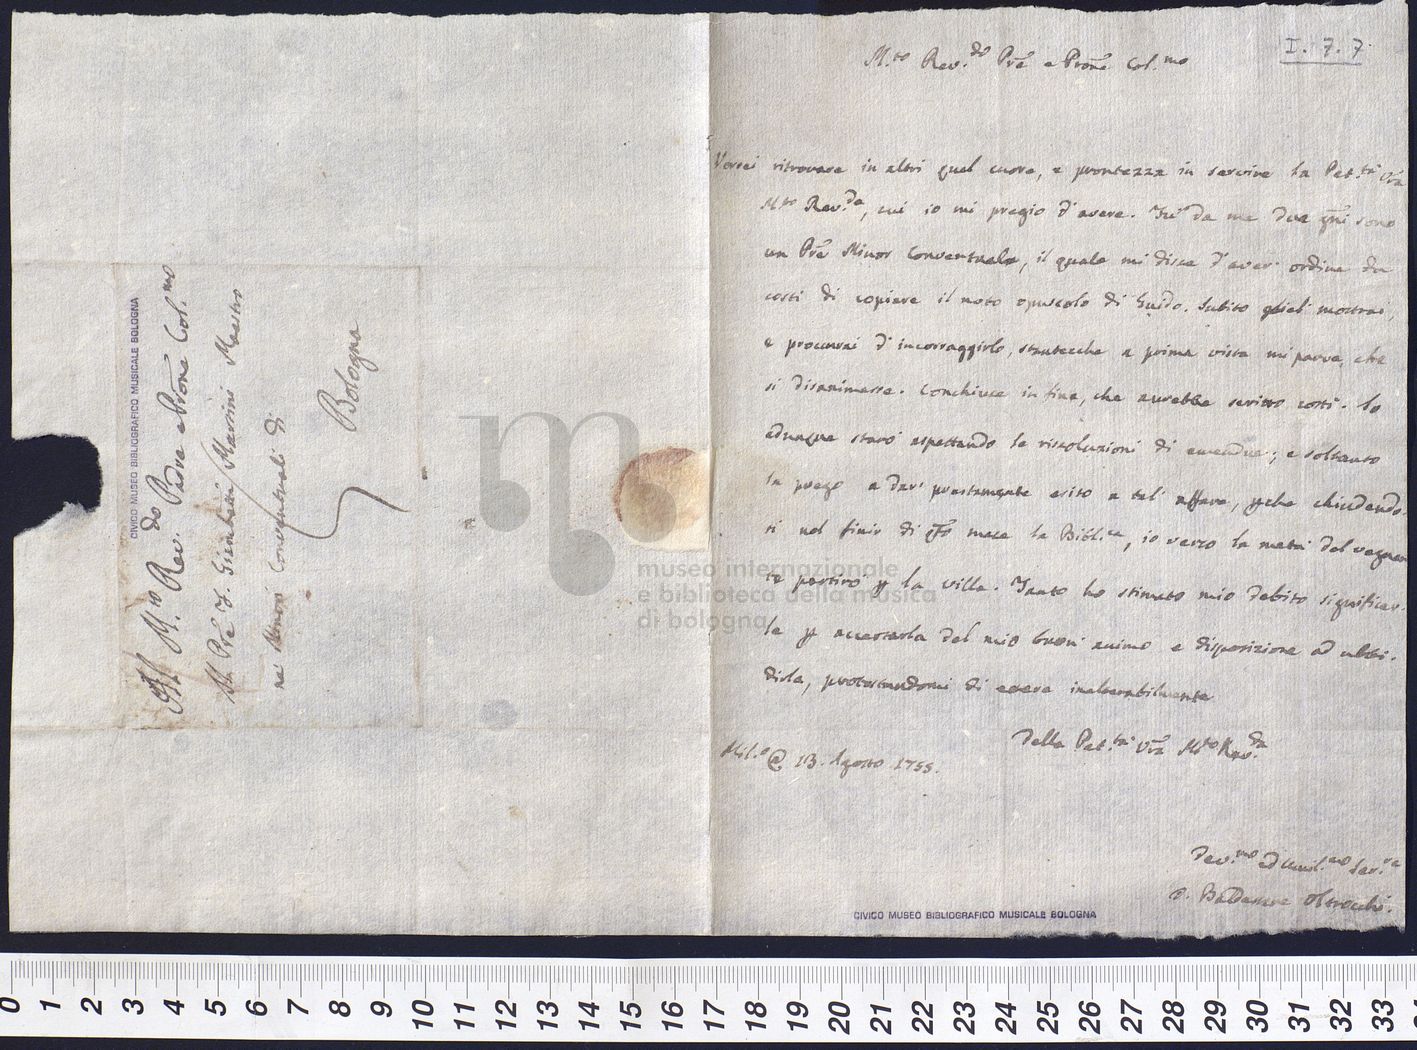 Al M.to Rev.do Padre e Prone Col.mo
Il Pre F. Giambatt. Martini Maestro
nei Minori Conventuali di
Bologna
CIVICO MUSEO BIBLIOGRAFICO MUSICALE BOLOGNA
I. 7. 7
M.to Rev.do Pre e Prone Col.mo
Vorrei ritrovare in altri quel cuore, e prontezza in servire la Pat.tà Vra
M.to Rev.da, cui io mi pregio d'avere. Fu da me due gni sono
un Pre Minor Conventuale, il quale mi disse d'aver ordine da
costì di copiare il noto opuscolo di Guido. Subito gliel mostrai,
e procurai d'incorraggirlo, stantecche a prima vista mi parve, che
si disanimasse. Conchiuse in fine, che avrebbe scritto costì. Io
adunque starò aspettando le rissoluzioni di amendue; e soltanto
la prego a dar prestamente esito a tal affare, pche chiudendo-
si nel finir di qto mese la Bibl.ca, io verso la metà del vegnen-
te partirò p la villa. Tanto ho stimato mio debito significar-
le p accertarla del mio buon animo e disposizione ad ubbi-
dirla, protestandomi di essere inalterabilmente
Della Pat.tà Vra M.to Rev.da
Mil.o @ 13. Agosto 1755.
Dev.mo ed Umil.mo Ser.re
D. Baldassare Oltrocchi.
CIVICO MUSEO BIBLIOGRAFICO MUSICALE BOLOGNA
museo internazionale
e biblioteca della musica
di bologna
0 1 2 3 4 5 6 7 8 9 10 11 12 13 14 15 16 17 18 19 20 21 22 23 24 25 26 27 28 29 30 31 32 33